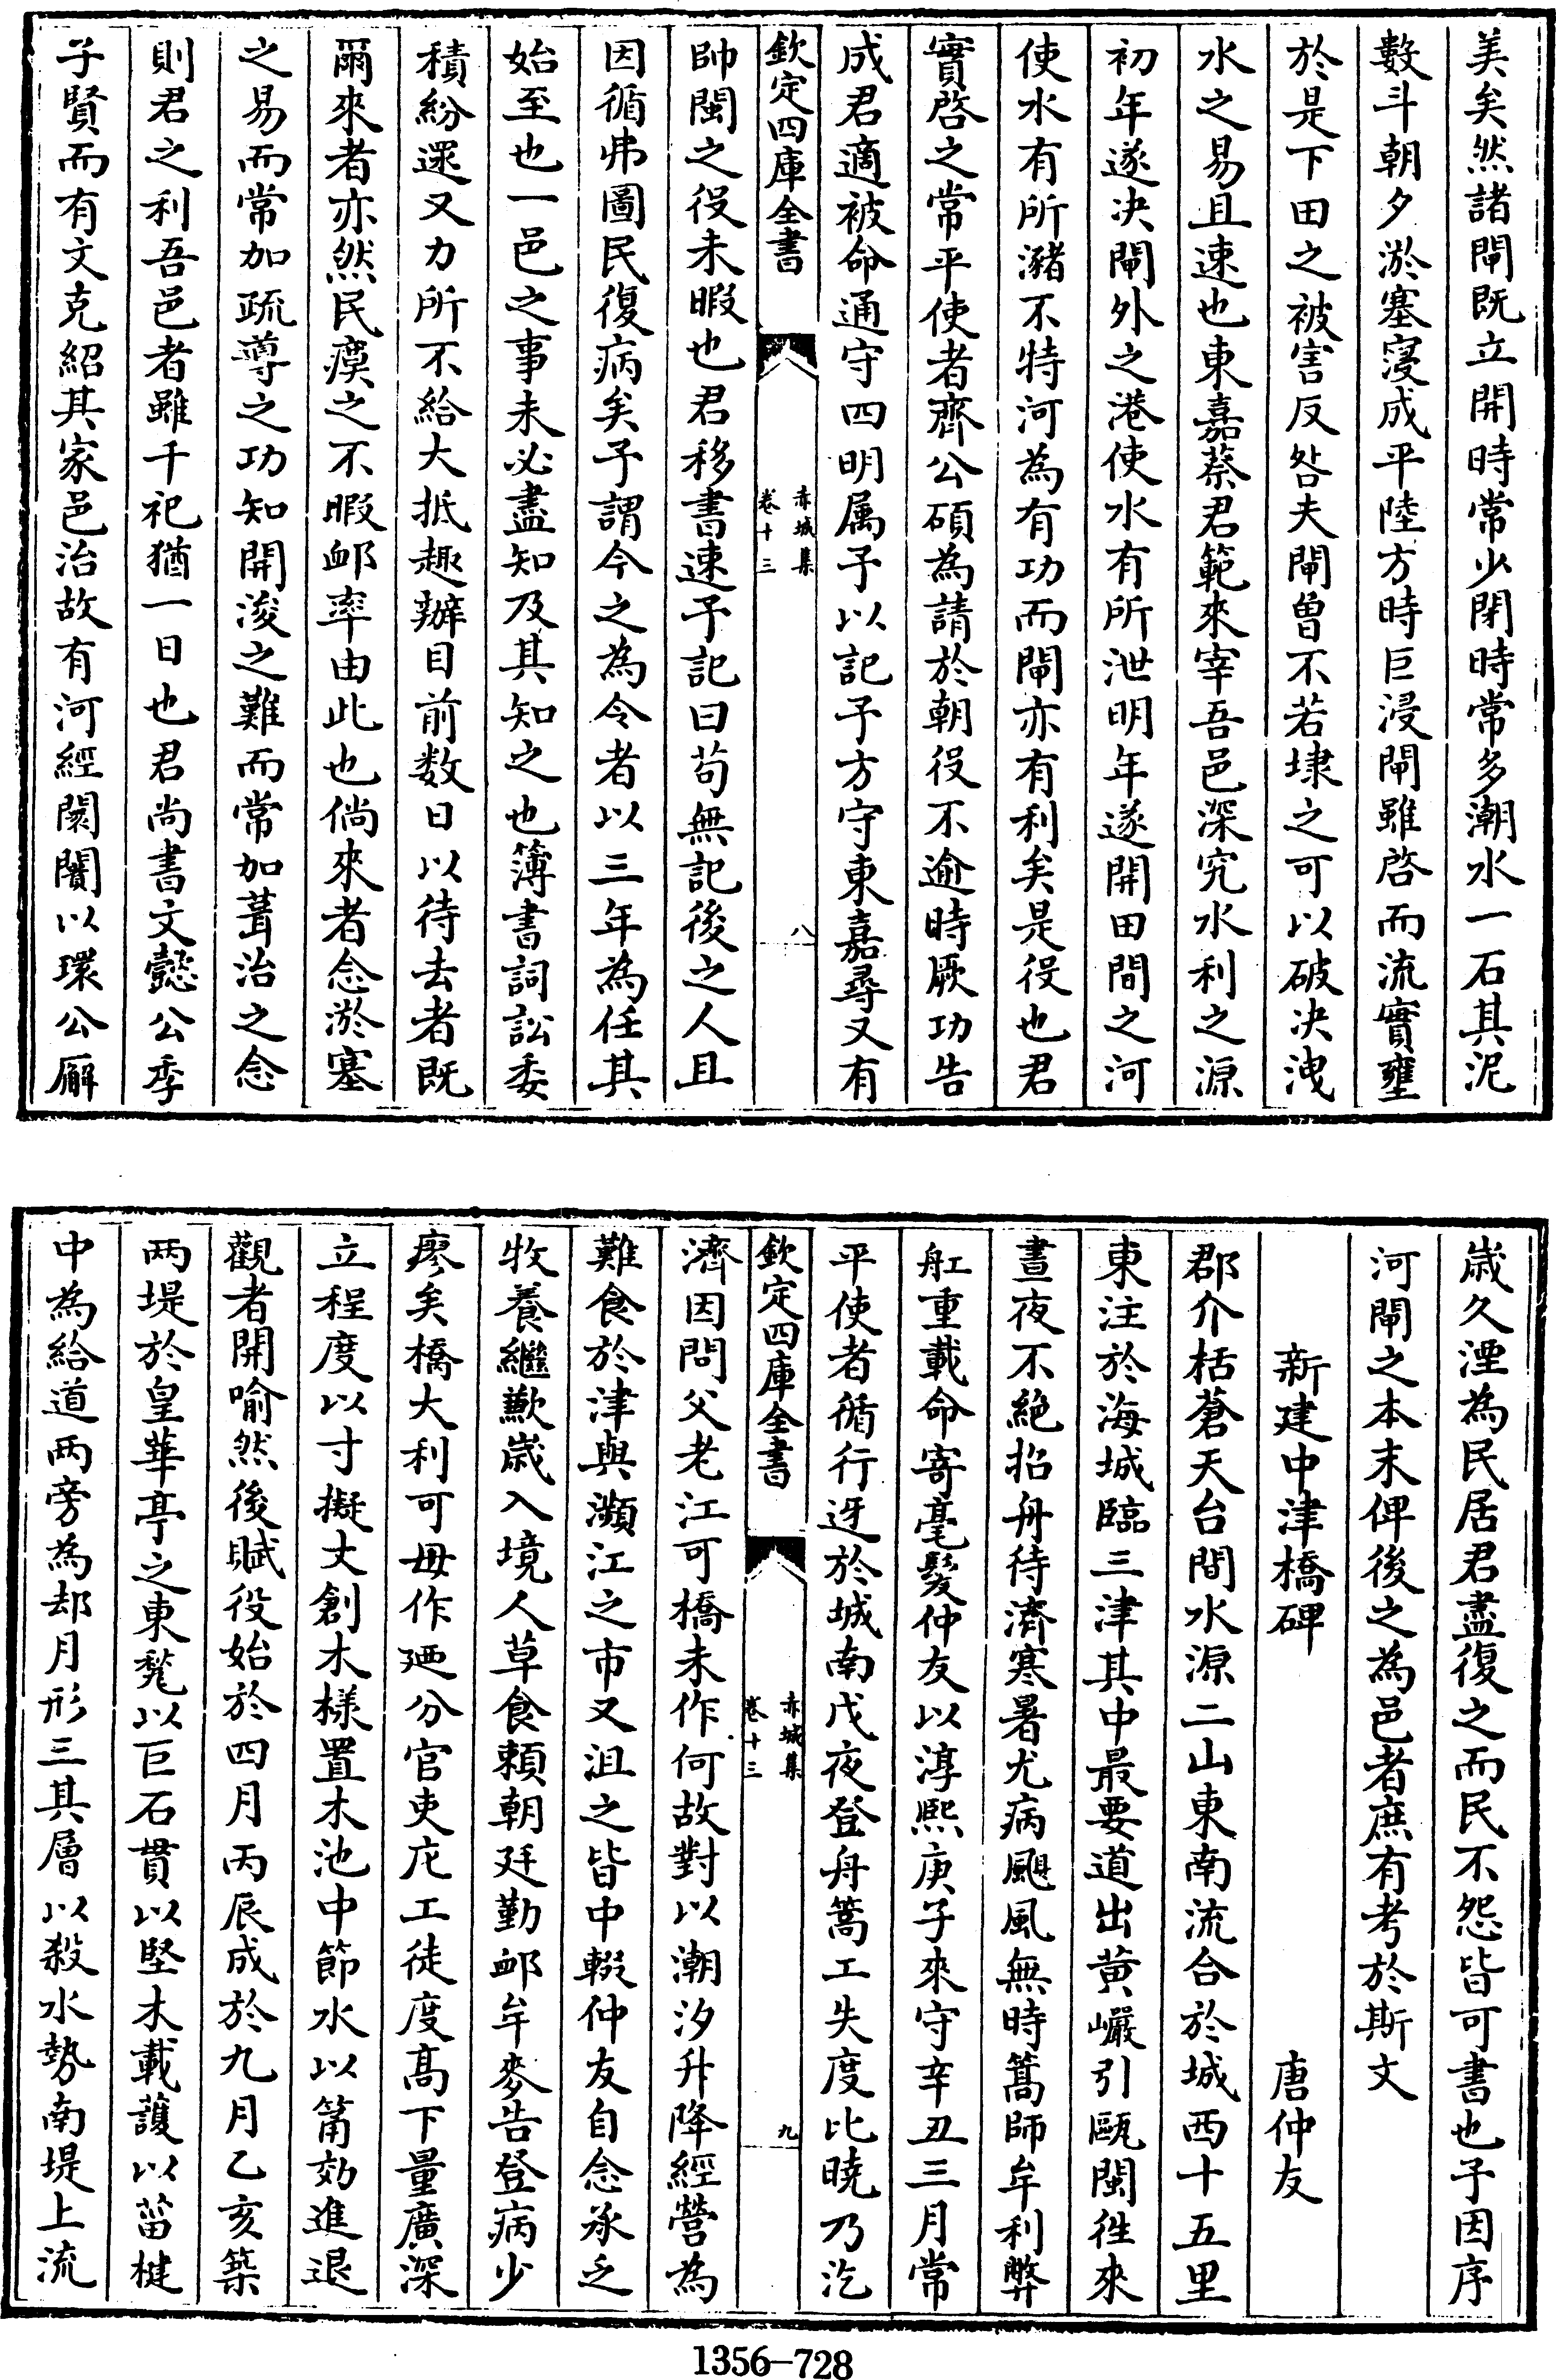 美矣然諸閘既立開時常少閉時常多潮水一石其泥
數斗朝夕淤塞寖成平陸方時巨浸閘雖啓而流實壅
於是下田之被害反咎夫閘曾不若埭之可以破决洩
水之易且速也東嘉蔡君範來宰吾邑深究水利之源
初年遂决閘外之港使水有所泄明年遂開田間之河
使水有所瀦不特河為有功而閘亦有利矣是役也君
實啓之常平使者齊公碩為請於朝役不逾時厥功告
成君適被命通守四明属予以記予方守東嘉尋又有
欽定四庫全書
赤城集
卷十三
八
帥閩之役未暇也君移書速予記曰苟無記後之人且
因循弗圖民復病矣予謂今之為令者以三年為任其
始至也一邑之事未必盡知及其知之也簿書詞訟委
積紛還又力所不給大抵趣辦目前数日以待去者既
爾來者亦然民瘼之不暇䘏率由此也倘來者念淤塞
之易而常加疏導之功知開浚之難而常加葺治之念
則君之利吾邑者雖千祀猶一日也君尚書文懿公季
子賢而有文克紹其家邑治故有河經闤闠以環公廨
歳久湮為民居君盡復之而民不怨皆可書也予因序
河閘之本末俾後之為邑者庶有考於斯文
新建中津橋碑　唐仲友
郡介栝蒼天台間水源二山東南流合於城西十五里
東注於海城臨三津其中最要道出黄巖引甌閩徃來
晝夜不絶招舟待濟寒暑尤病颶風無時篙師牟利弊
舡重載命寄毫髮仲友以淳熙庚子來守辛丑三月常
平使者循行迓於城南戊夜登舟篙工失度比曉乃汔
欽定四庫全書
赤城集
卷十三
九
濟因問父老江可橋未作何故對以潮汐升降經營為
難食於津與瀕江之市又沮之皆中輟仲友自念承乏
牧養繼歉歳入境人草食頼朝廷勤䘏牟麥告登病少
瘳矣橋大利可毋作廼分官吏庀工徒度髙下量廣深
立程度以寸擬丈創木様置木池中節水以筩効進退
觀者開喻然後賦役始於四月丙辰成於九月乙亥築
两堤於皇華亭之東甃以巨石貫以堅木載護以菑楗
中為給道两旁為却月形三其層以殺水勢南堤上流
1356—728